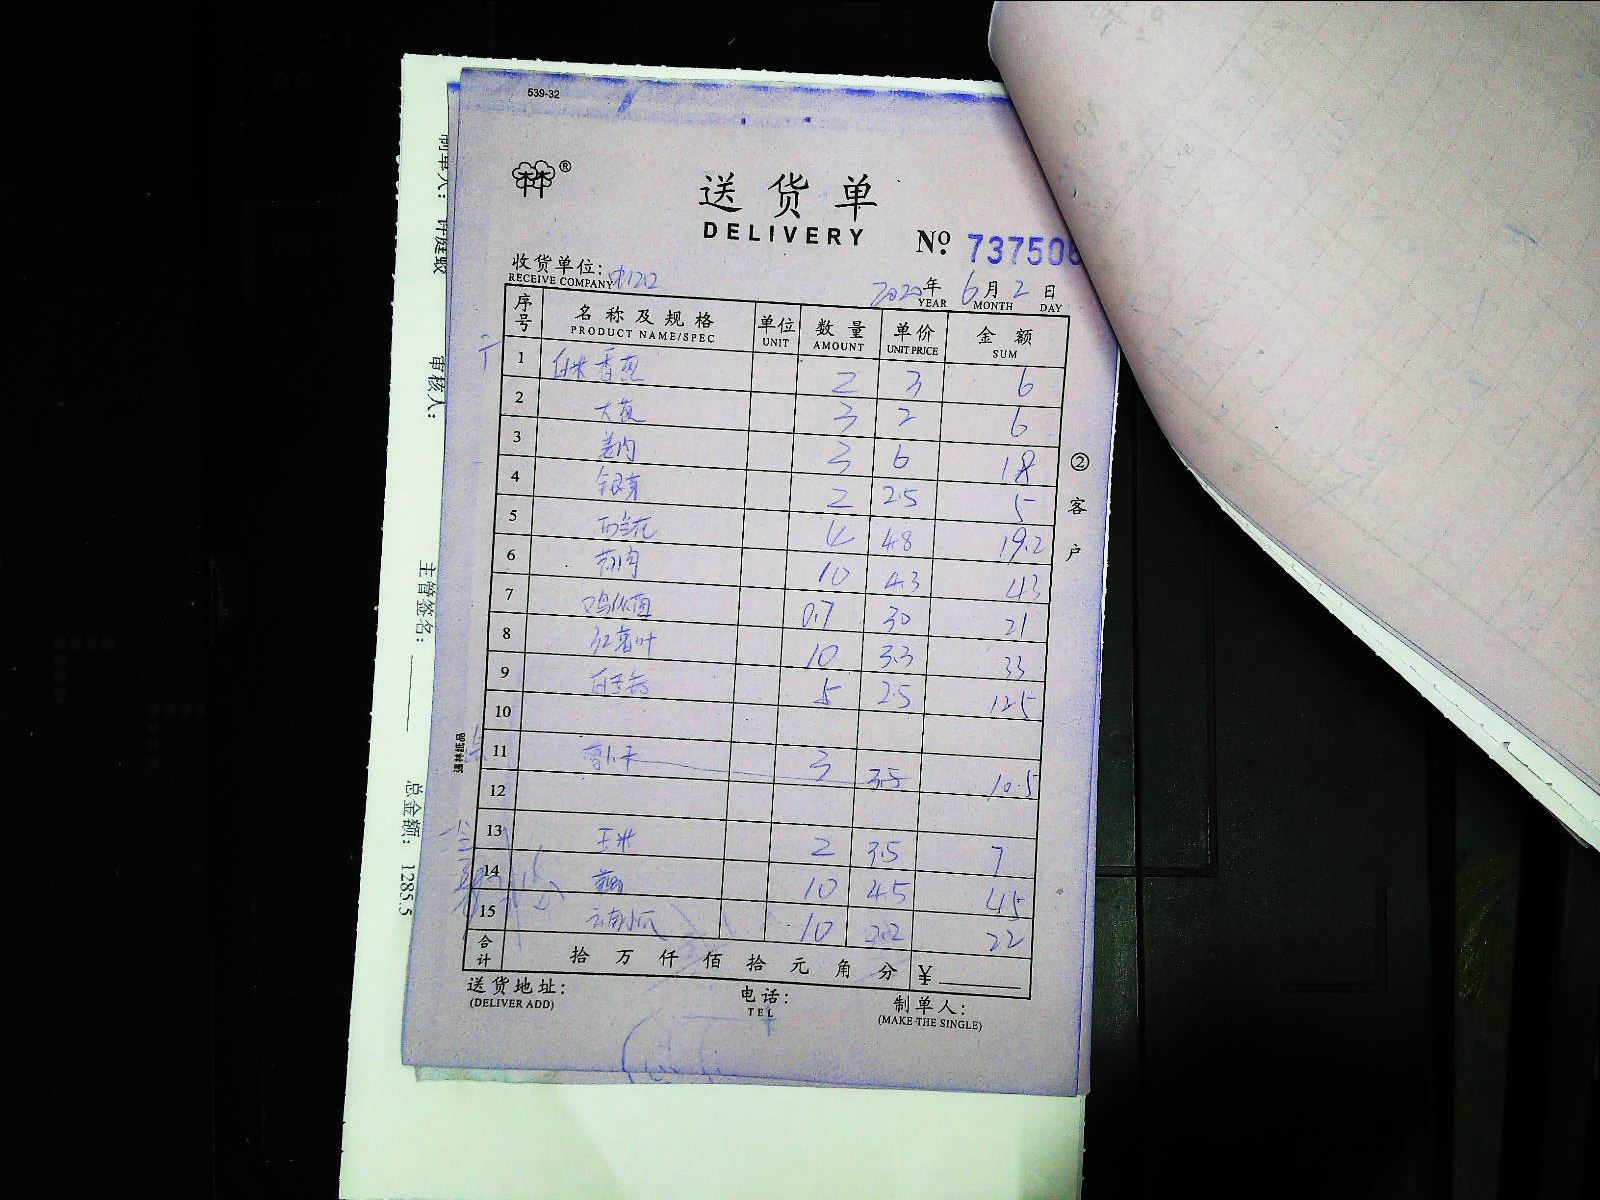 539-32
®
送货单
DELIVERY
№ 737506
收货单位:
RECEIVE COMPANY
2020 年 6 月 2 日
YEAR MONTH DAY
序号 名称及规格 单位 数量 单价 金额
PRODUCT NAME/SPEC UNIT AMOUNT UNIT PRICE SUM
1 香葱 2 3 6
2 大葱 3 2 6
3 姜肉 3 6 18
4 银芽 2 2.5 5
5 西兰花 4 4.8 19.2
6 10 4.3 43
7 0.7 30 21
8 红薯叶 10 3.3 33
9 5 2.5 12.5
10
11 3 3.5 10.5
12
13 玉米 2 3.5 7
14 10 4.5 45
15 云南小瓜 10 2.2 22
合计 拾 万 仟 佰 拾 元 角 分 ¥
送货地址:
(DELIVER ADD)
电话:
TEL
制单人:
(MAKE THE SINGLE)
②客户
通林纸品
制单人:
审核人:
主管签名:
总金额: 1285.5